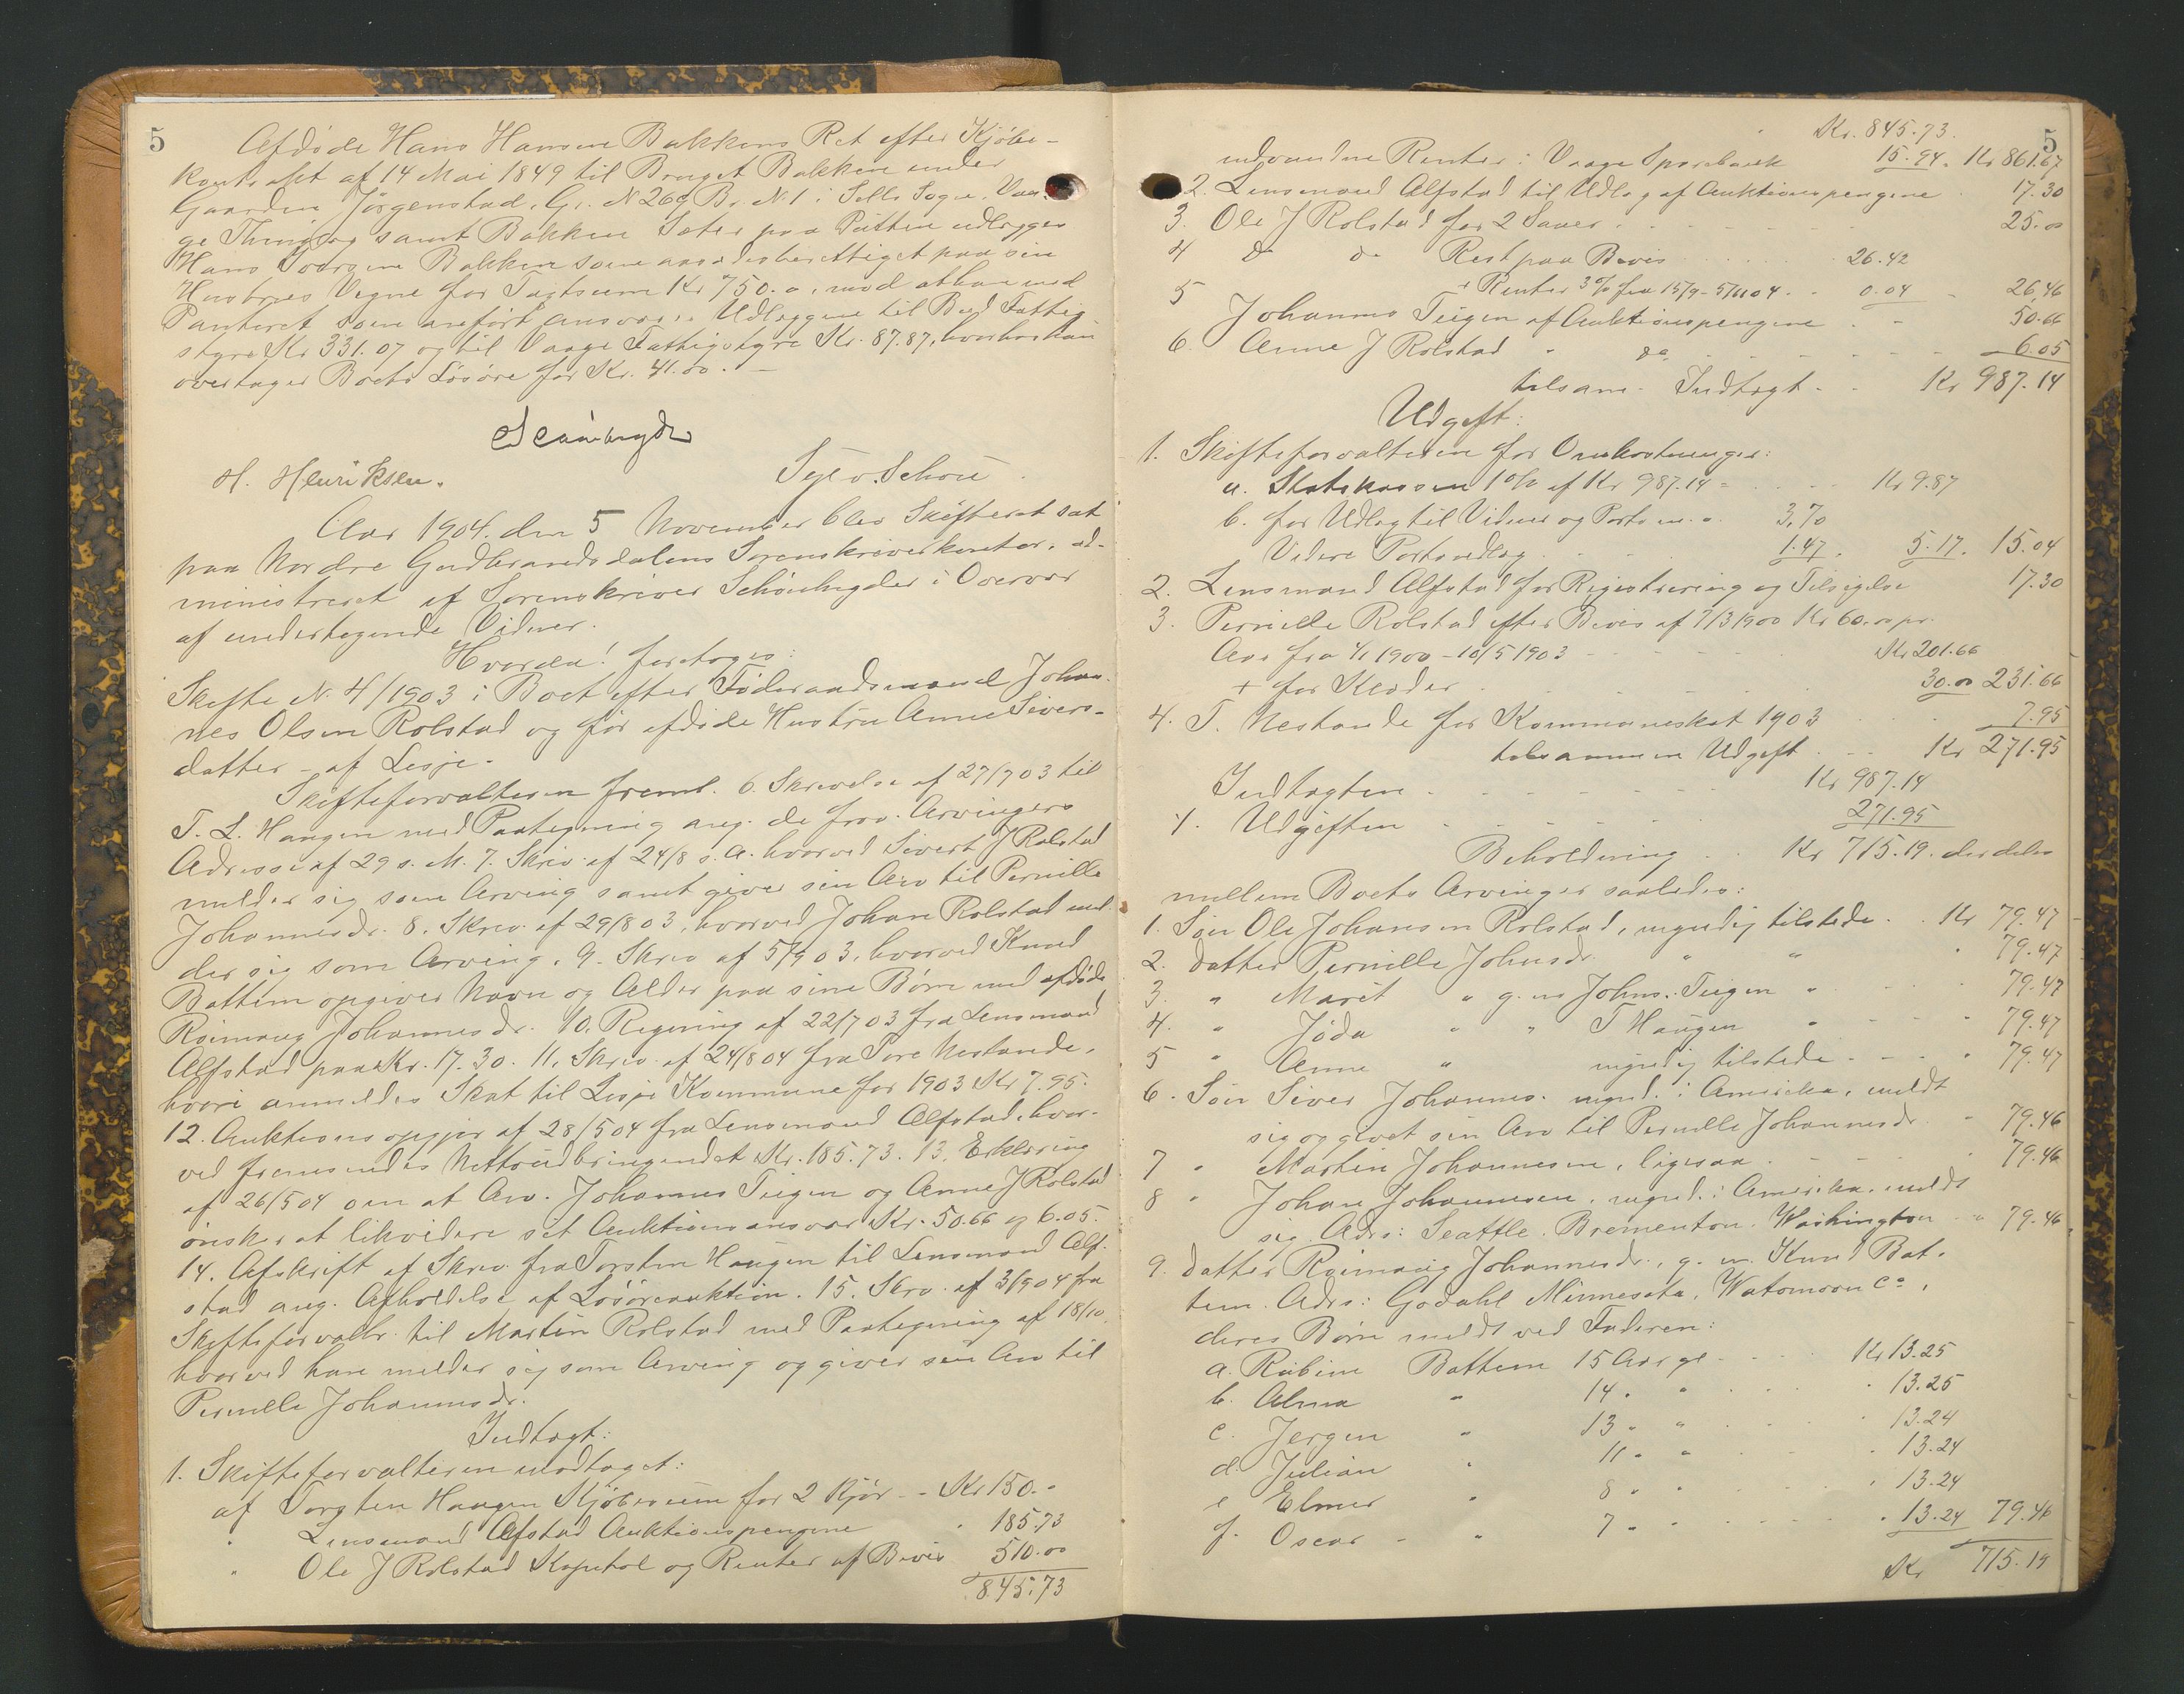 5
Afdøde Hans Hansen Bakkens Ret efter Kjøbe-
kontrakt af 14 Mai 1849 til Bruget Bakken under
Gaarden Jørgenstad, Gr. N 269 Br. N. 1 i Sells Sogn, Vaa-
ge Thinglag samt Bakken Sæter paa Putten udlægges
Hans Bakken som aasædesberettiget paa sin
Hustrues Vegne for Taxtsum Kr 750.0, mod at han med
Panteret som anført ansvarer Udlæggene til Bud Fattig-
styre Kr 331.07 og til Vaage Fattigstyre Kr. 87.87, hvorhos han
overtager Boets Løsøre for Kr. 41.00. —
H. Henriksen. Syev. Schou
Aar 1904 den 5 November blev Skifteret sat
paa Nordre Gudbrandsdalens Sorenskriverkontor, ad-
ministreret af Sorenskriver Schönheyder i Overvær
af undertegnede Vidner.
Hvorda! foretoges:
Skifte N. 4/1903 i Boet efter Føderaadsmand Johan-
nes Olsen Rolstad og før afdøde Hustru Anne Sivers-
datter - af Lesje.
Skifteforvalteren freml. 6. Skrivelse af 27/7 03 til
T. L. Haugen med Paategning ang. de frav. Arvingers
Adresse af 29 s. M. 7. Skriv. af 24/8 s. A. hvorved Sivert J Rolstad
melder sig som Arving samt giver sin Arv til Pernille
Johannesdr. 8. Skriv. af 29/8 03, hvorved Johan Rolstad mel-
der sig som Arving. 9. Skriv af 5/9 03, hvorved Knud
Battem opgiver Navn og Alder paa sine Børn med afdøde
Roimaug Johannesdr. 10. Regning af 22/7 03 fra Lensmand
Alfstad paa Kr. 17.30. 11. Skriv. af 24/8 04 fra Tore Nestande,
hvori anmeldes Skat til Lesje Kommune for 1903 Kr 7.95.
12. Auktionsopgjør af 28/5 04 fra Lensmand Alfstad, hvor-
ved fremsendes Nettoudbringendet Kr. 185.73. 13. Erklæring
af 26/5 04 om at Arv. Johannes Teigen og Anne J Rolstad
ønsker at likvidere sit Auktionsansvar Kr. 50.66 og 6.05.
14. Afskrift af Skriv. fra Torsten Haugen til Lensmand Alf-
stad ang. Afholdelse af Løsøreauktion. 15. Skriv. af 3/9 04 fra
Skifteforvaltr. til Martin Rolstad med Paategning af 18/10,
hvorved han melder sig som Arving og giver sin Arv til
Pernille Johannesdr.
Indtægt:
1. Skifteforvalteren modtaget:
af Torsten Haugen Kjøbesum for 2 Kjør - - Kr 150. -
" Lensmand Alfstad Auktionspengene " 185.73
" Ole J Rolstad Kapital og Renter af Bevis 510.00
845.73
5
Kr. 845.73.
indvundne Renter i Vaage Sparebank 15.94. Kr 861.67
2. Lensmand Alfstad til Udlæg af Auktionspengene 17.30
3. Ole J Rolstad for 2 Sauer 25.00
4 do do Rest paa Bevis 26.42
+ Renter 3% fra 15/9 - 5/11 04 - - 0.04 26,46
5 Johannes Teigen af Auktionspengene 50.66
6. Anne J Rolstad " do 6.05
tilsam. Indtægt - - Kr 987.14
Udgift:
1. Skifteforvalteren for Omkostninger:
a. Statskassen 1% af Kr 987.14 = Kr 9.87
b. for Udlæg til Vidner og Porto m.v. 3,70
Videre Portoudlæg 1.47. 5.17. 15.04
2. Lensmand Alfstad for Registrering og Tilsigelse 17.30
3. Pernille Rolstad efter Bevis af 7/3 1900 Kr 60.00 pr.
Aar fra 1/1 1900 - 10/5 1903 Kr 201.66
+ for Klæder 30.00 231.66
4. T. Nestande for Kommuneskat 1903 7.95
tilsammen Udgift Kr 271.95
Indtægten Kr 987.14
÷. Udgiften 271.95
Beholdning Kr 715.19. der deles
mellem Boets Arvinger saaledes:
1. Søn Ole Johansen Rolstad, myndig tilstede Kr 79.47
2. Datter Pernille Johnsdr. " " " 79.47
3. " Marit " g. m Johns. Teigen " 79.47
4. " Jøda " " T Haugen " 79.47
5 " Anne " myndig tilstede 79.47
6. Søn Siver Johannes. mynd. i Amerika, meldt
sig og givet sin Arv til Pernille Johannesdr. 79.46
7 " Martin Johannesen, ligesaa 79.46
8 " Johan Johannesen, mynd. i Amerika, meldt
sig. Adrs: Seattle. Brementon. Washington " 79.46
9. Datter Roimaug Johannesdr., g. m. Knud Bat-
tem. Adrs: Godahl Minnesota, Watomoon Co,
deres Børn meldt ved Faderen:
a. Rubine Battem 15 Aar gl. Kr 13.25
b. Alma " 14 " " 13.25
c. Jergen " 13 " " 13.24
d. Julian " 11 " " 13.24
e Elmer " 8 " " 13.24
f. Oscar " 7 " " 13.24 79.46
Kr 715.19